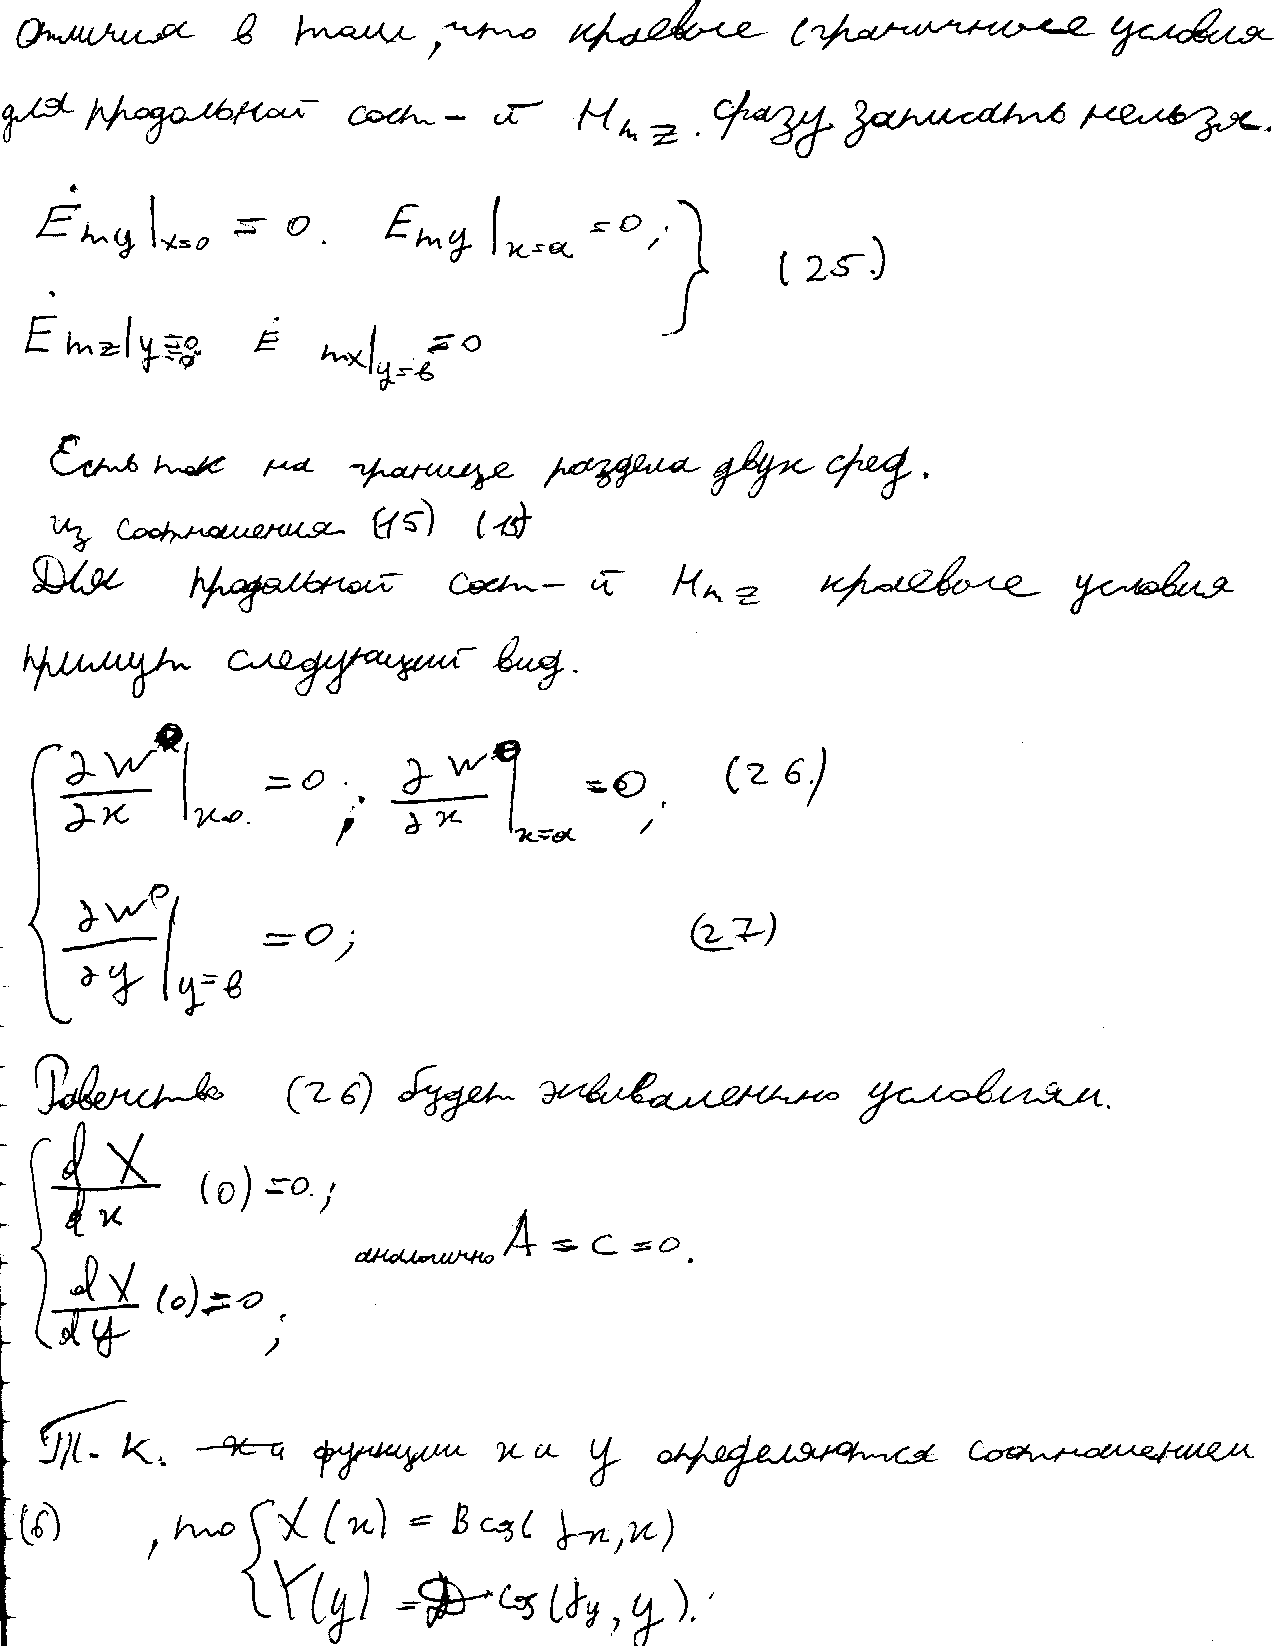 Отличия в том, что краевые (граничные условия
для продольной сост-й Hmz. сразу записать нельзя.
Ėmy|x=0 = 0. Emy|x=a = 0; } (25.)
Ėmz|y=0 Ė mx|y=в = 0
Есть ток на границе раздела двух сред.
из соотношения (15)
Для продольной сост-й Hmz краевые условия
примут следующий вид.
∂W/∂x |x=0. = 0; ∂W/∂x |x=a = 0, (26.)
∂W⁰/∂y |y=в = 0; (27)
Равенство (26) будет эквивалентно условиям.
dX/dx (0)=0.;
аналогично A = C = 0.
dY/dy (0)=0;
Т.к. функции x и y определяются соотношением
(6) , то { X(x) = B cos(γx, x)
Y(y) = D cos(γy, y).